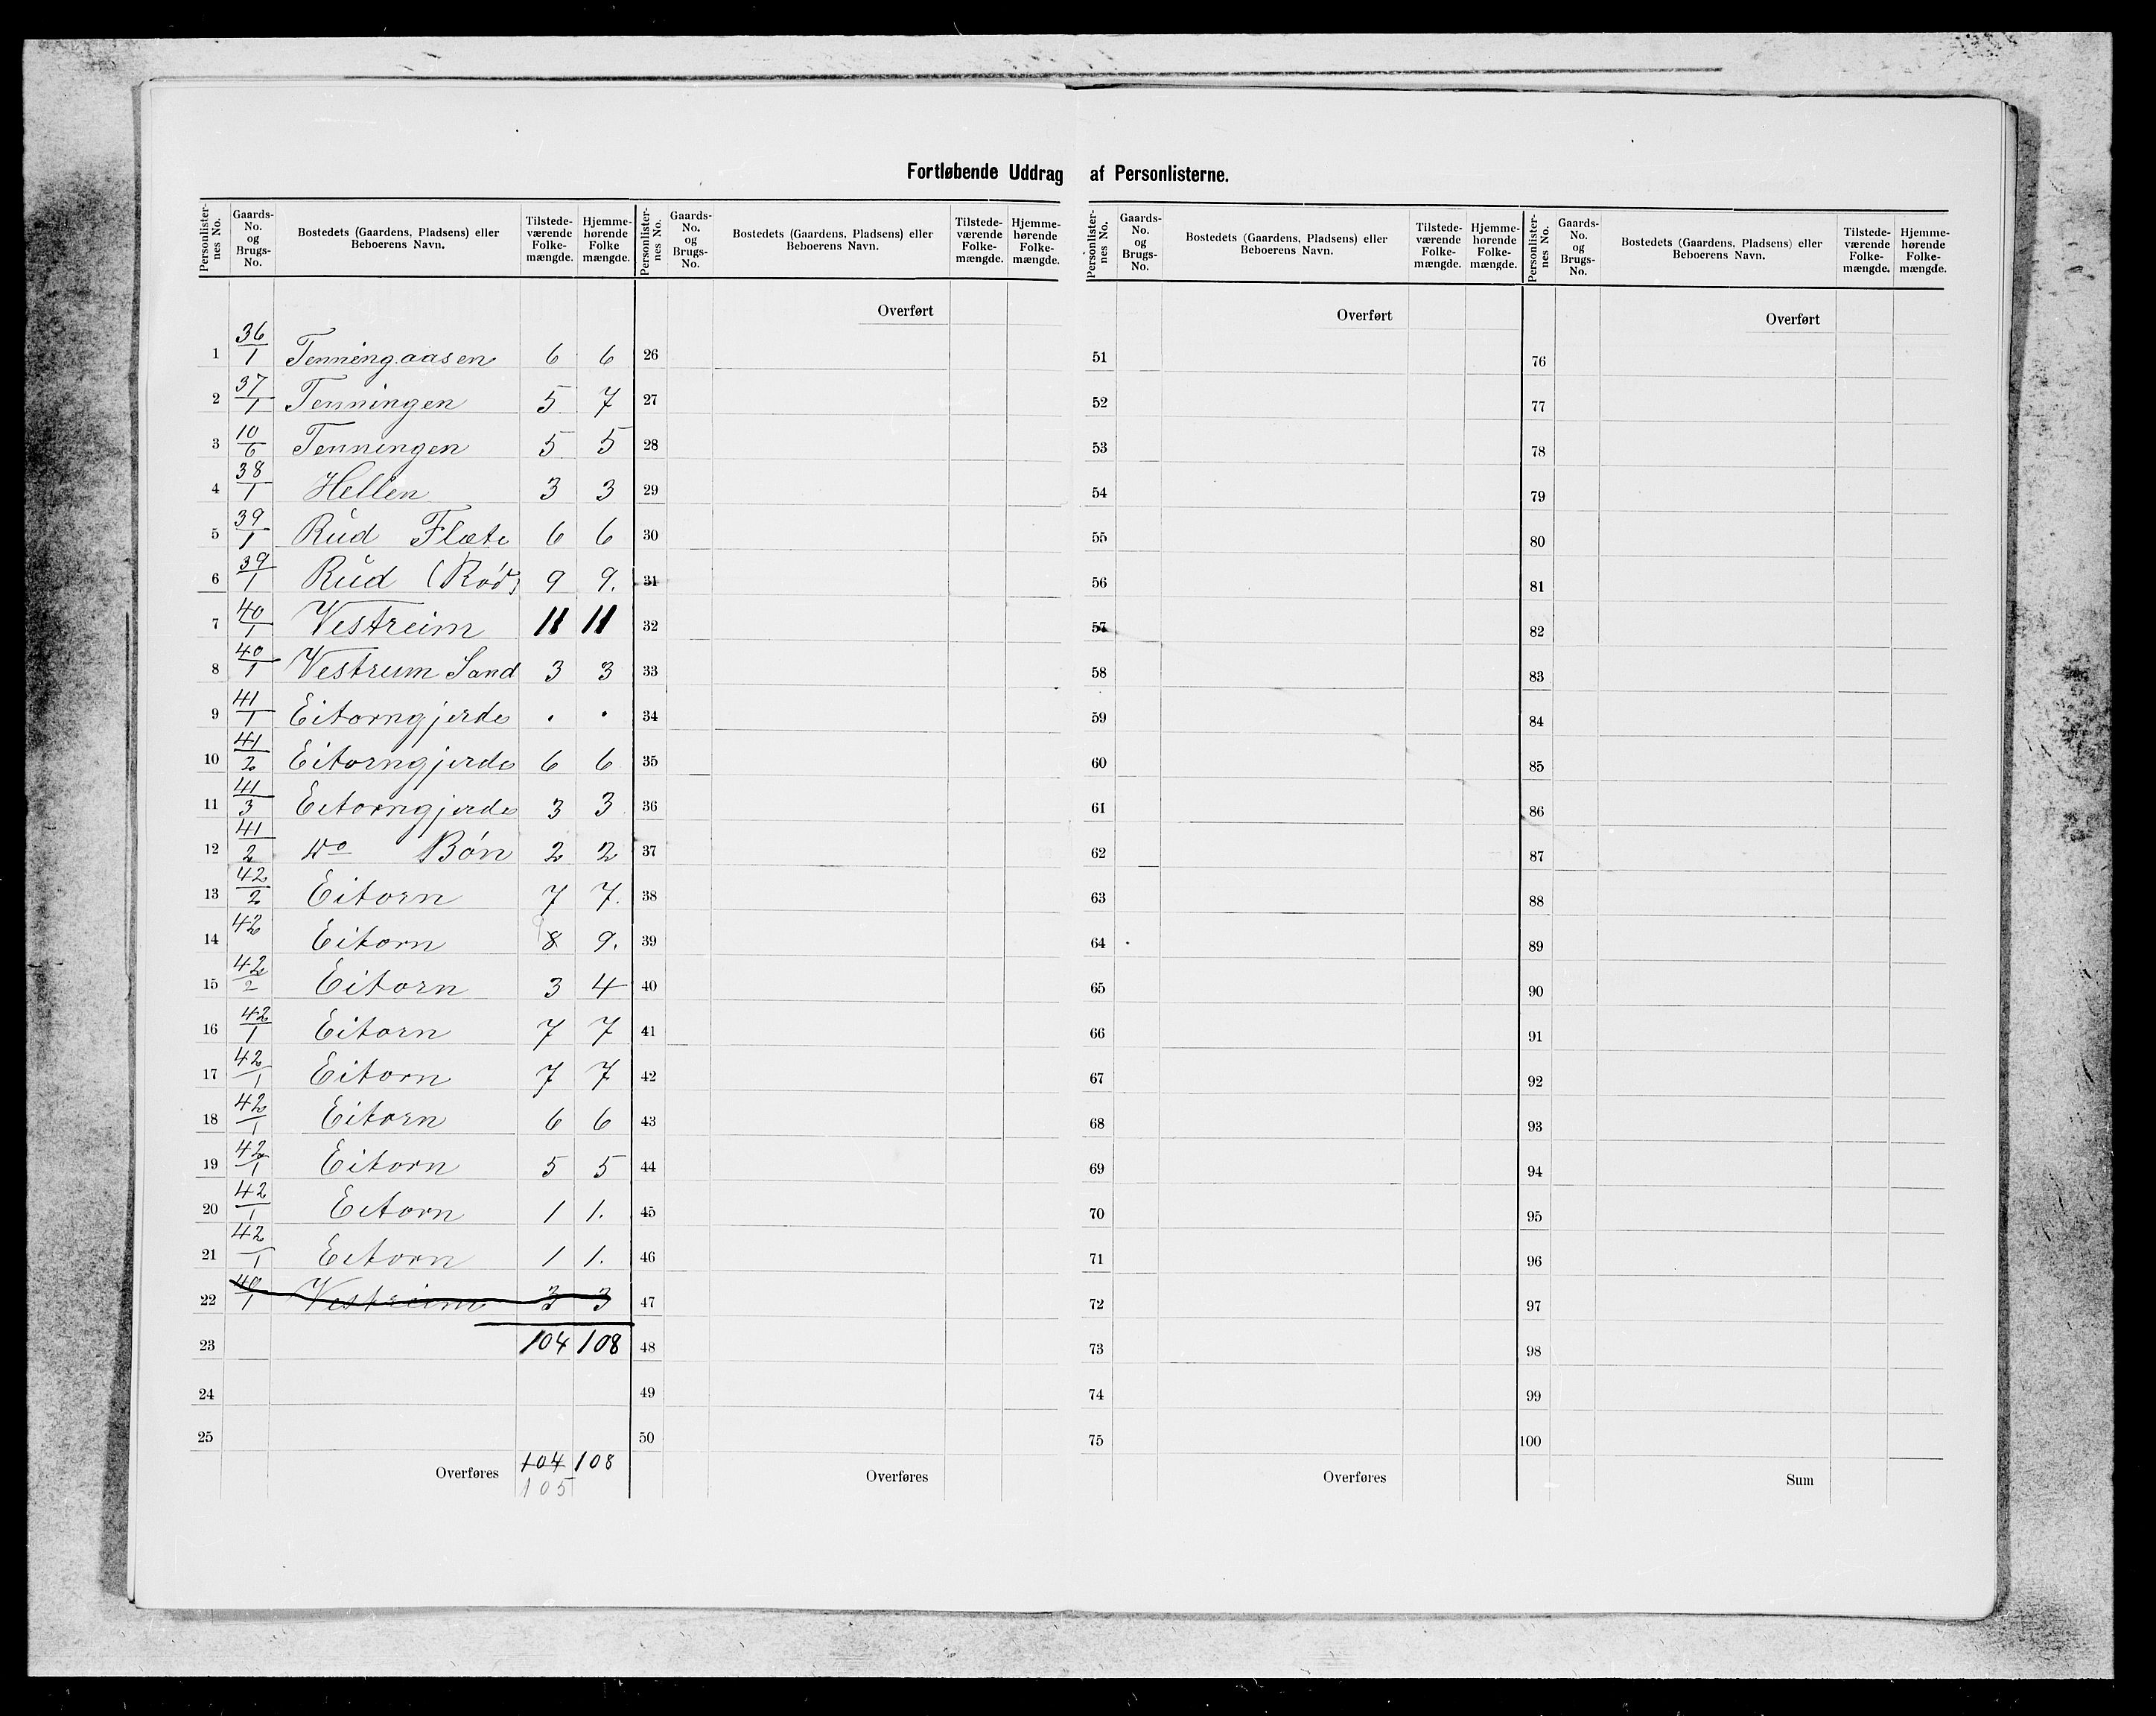 Fortløbende Uddrag af Personlisterne.
Personlister-nes No. | Gaards-No. og Brugs-No. | Bostedets (Gaardens, Pladsens) eller Beboerens Navn. | Tilstede-værende Folke-mængde. | Hjemme-hørende Folke mængde.
1 36/1 Tenningaasen 6 6
2 37/1 Tenningen 5 7
3 10/6 Tenningen 5 5
4 38/1 Hellen 3 3
5 39/1 Rud Flæte 6 6
6 39/1 Rud (Ród) 9 9.
7 40/1 Vestreim 11 11
8 40/1 Vestreim Sand 3 3
9 41/1 Eitorngjerde . .
10 41/2 Eitorngjerde 6 6
11 41/3 Eitorngjerde 3 3
12 41/2 do Bón 2 2
13 42/2 Eitorn 7 7.
14 42 Eitorn 8 9 9.
15 42/2 Eitorn 3 4
16 42/1 Eitorn 7 7
17 42/1 Eitorn 7 7
18 42/1 Eitorn 6 6
19 42/1 Eitorn 5 5
20 42/1 Eitorn 1 1.
21 42/1 Eitorn 1 1.
22 40/1 Vestreim 3 3
23 104 108
24
25
Overføres 104 108
105
Personlister-nes No. | Gaards-No. og Brugs-No. | Bostedets (Gaardens, Pladsens) eller Beboerens Navn. | Tilstede-værende Folke-mængde. | Hjemme-hørende Folke-mængde.
Overført
26
27
28
29
30
31
32
33
34
35
36
37
38
39
40
41
42
43
44
45
46
47
48
49
50
Overføres
Personlister-nes No. | Gaards-No. og Brugs-No. | Bostedets (Gaardens, Pladsens) eller Beboerens Navn. | Tilstede-værende Folke-mængde. | Hjemme-hørende Folke-mængde.
Overført
51
52
53
54
55
56
57
58
59
60
61
62
63
64
65
66
67
68
69
70
71
72
73
74
75
Overføres
Personlister-nes No. | Gaards-No. og Brugs-No. | Bostedets (Gaardens, Pladsens) eller Beboerens Navn. | Tilstede-værende Folke-mængde. | Hjemme-hørende Folke-mængde.
Overført
76
77
78
79
80
81
82
83
84
85
86
87
88
89
90
91
92
93
94
95
96
97
98
99
100
Sum